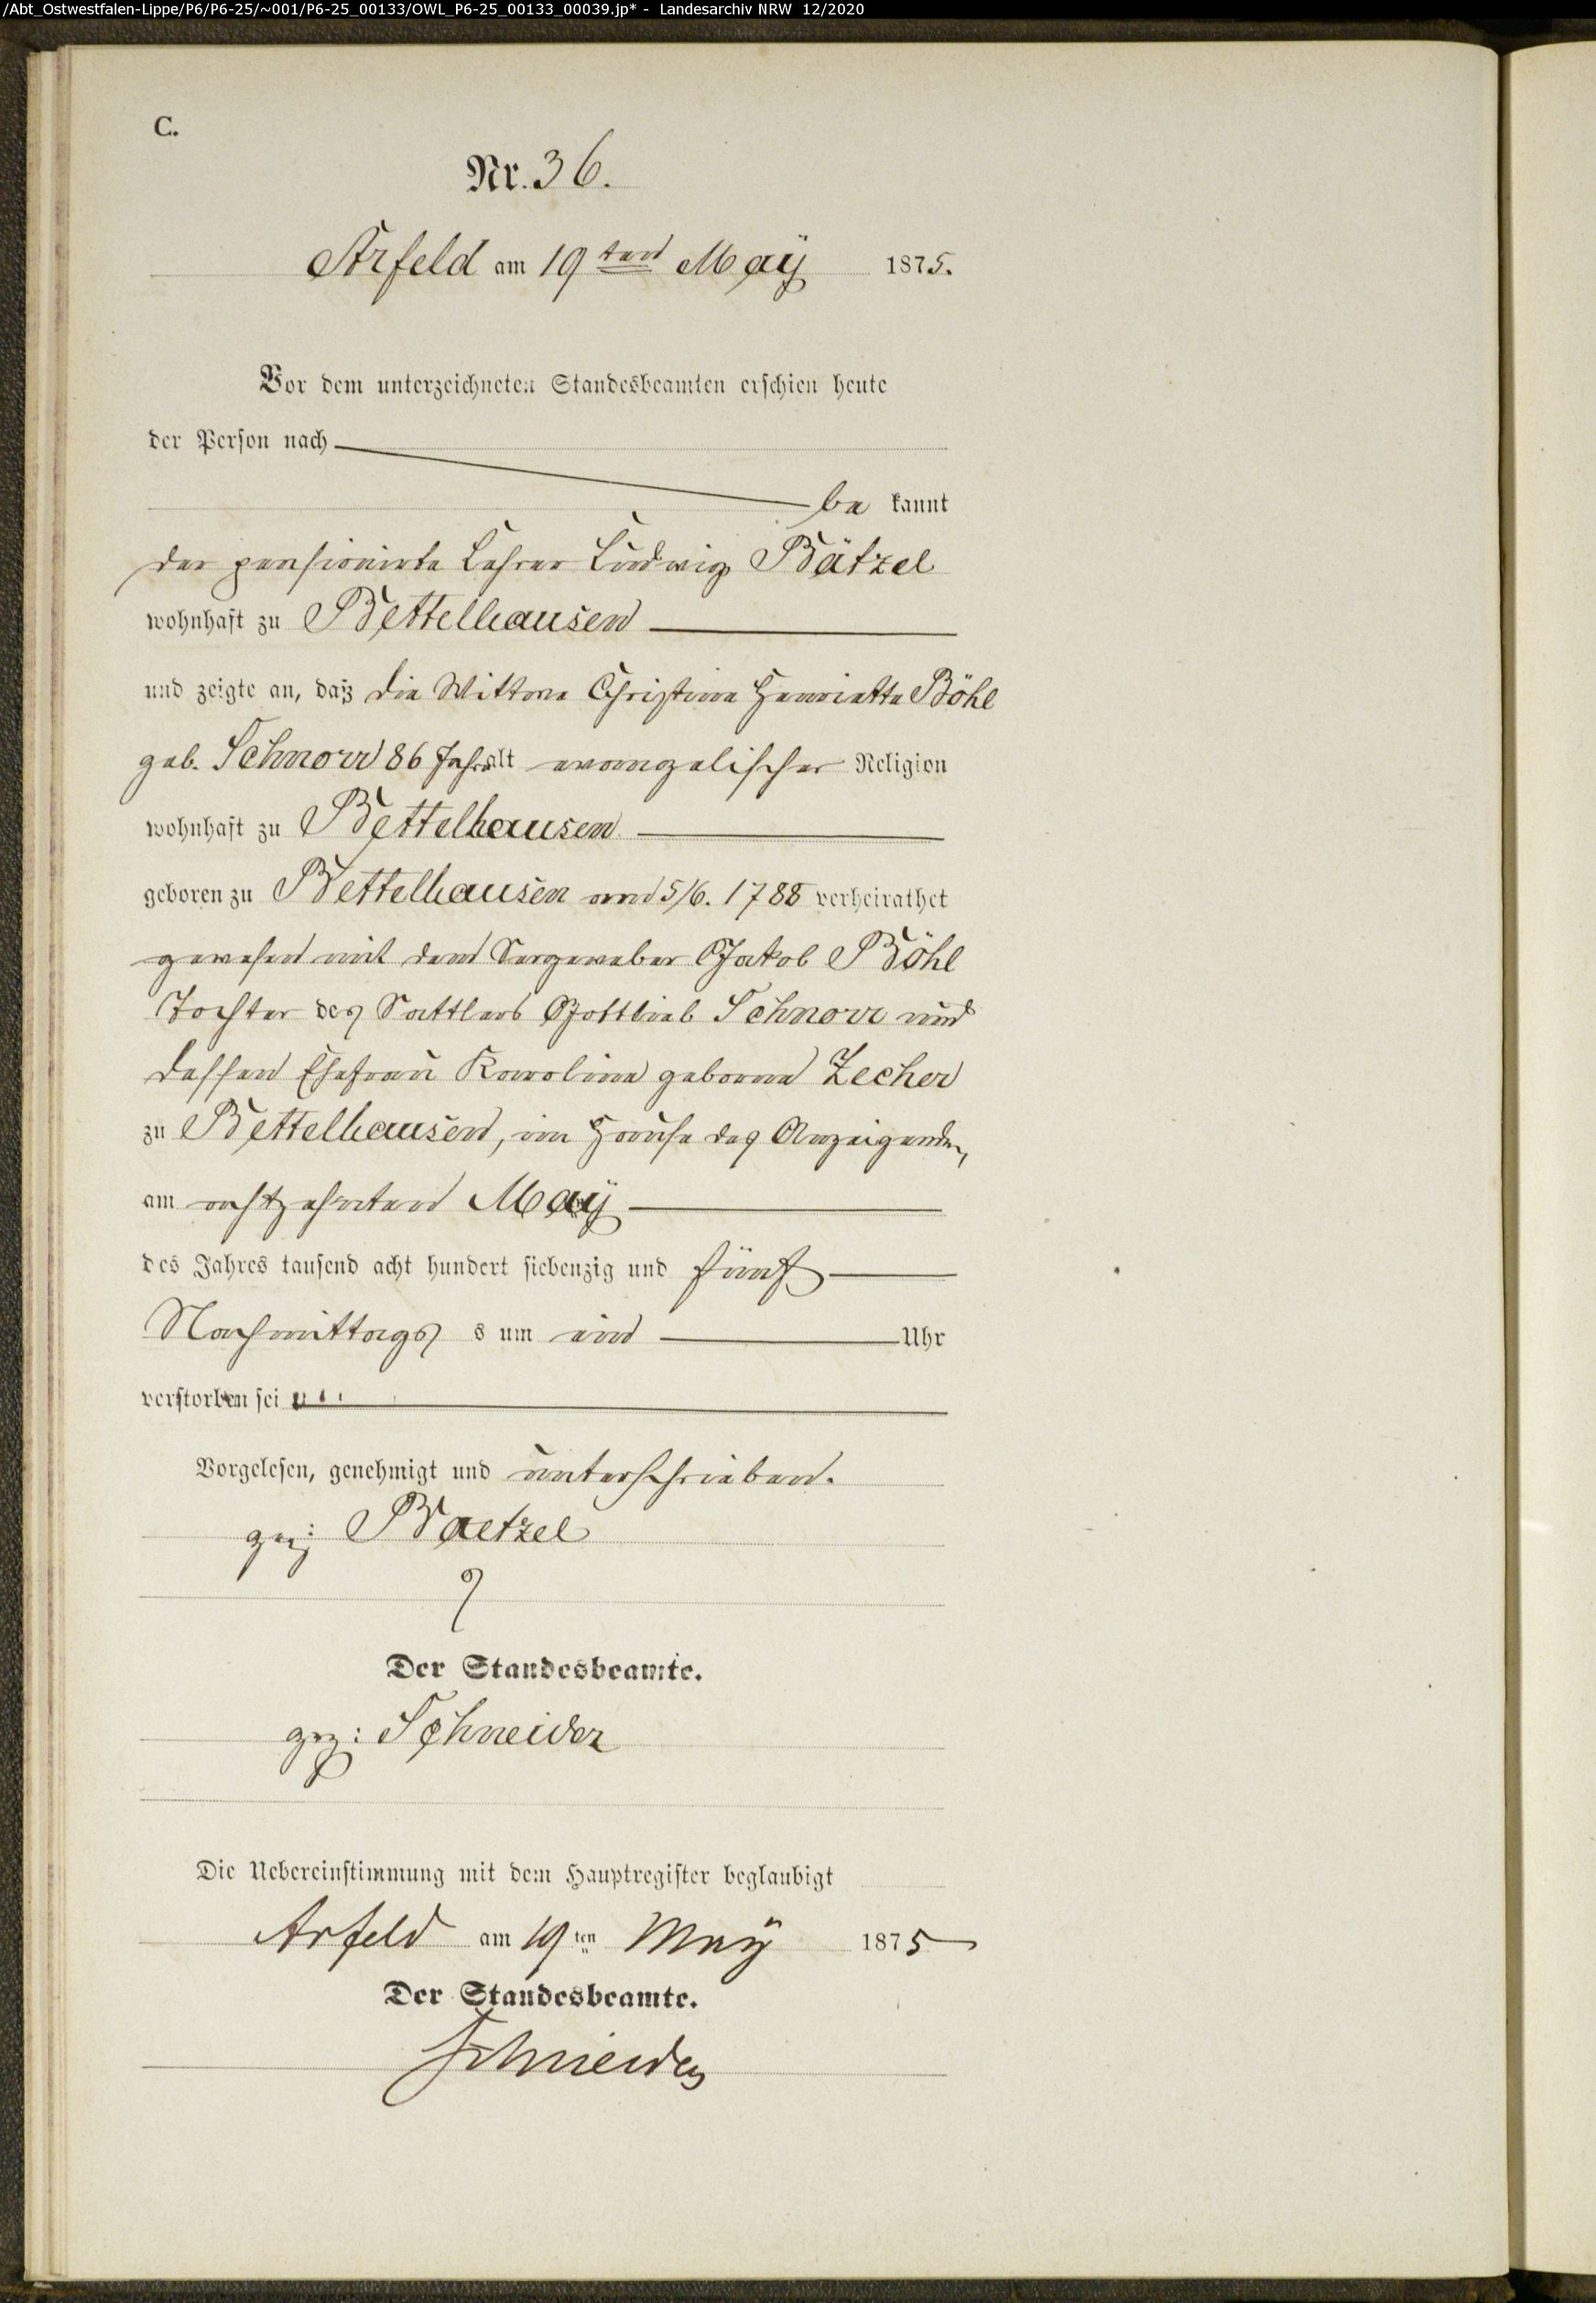 /Abt_Ostwestfalen-Lippe/P6/P6-25/~001/P6-25_00133/OWL_P6-25_00133_00039.jp* - Landesarchiv NRW 12/2020
C.
Nr. 36.
Arfeld am 19ten Maÿ 1875.
Vor dem unterzeichneten Standesbeamten erschien heute
der Person nach
be kannt
der pensionirte Lehrer Ludwig Bätzel
wohnhaft zu Bettelhausen
und zeigte an, daß die Wittwe Christine Henriette Böhl
geb. Schnorr 86 Jahr alt evangelischer Religion
wohnhaft zu Bettelhausen
geboren zu Bettelhausen am 5/6. 1788 verheirathet
gewesen mit dem Jakob Böhl
Tochter des Sattlers Gottlieb Schnorr und
dessen Ehefrau Karoline geborne Zecher
zu Bettelhausen, im Hause des Anzeigenden,
am achtzehnten Maÿ
des Jahres tausend acht hundert siebenzig und fünf
Nachmittags s um ein Uhr
verstorben sei
Vorgelesen, genehmigt und unterschrieben.
gez: Baetzel
Der Standesbeamte.
gez: Schneider
Die Uebereinstimmung mit dem Hauptregister beglaubigt
Arfeld am 19ten Maÿ 1875
Der Standesbeamte.
Schneider